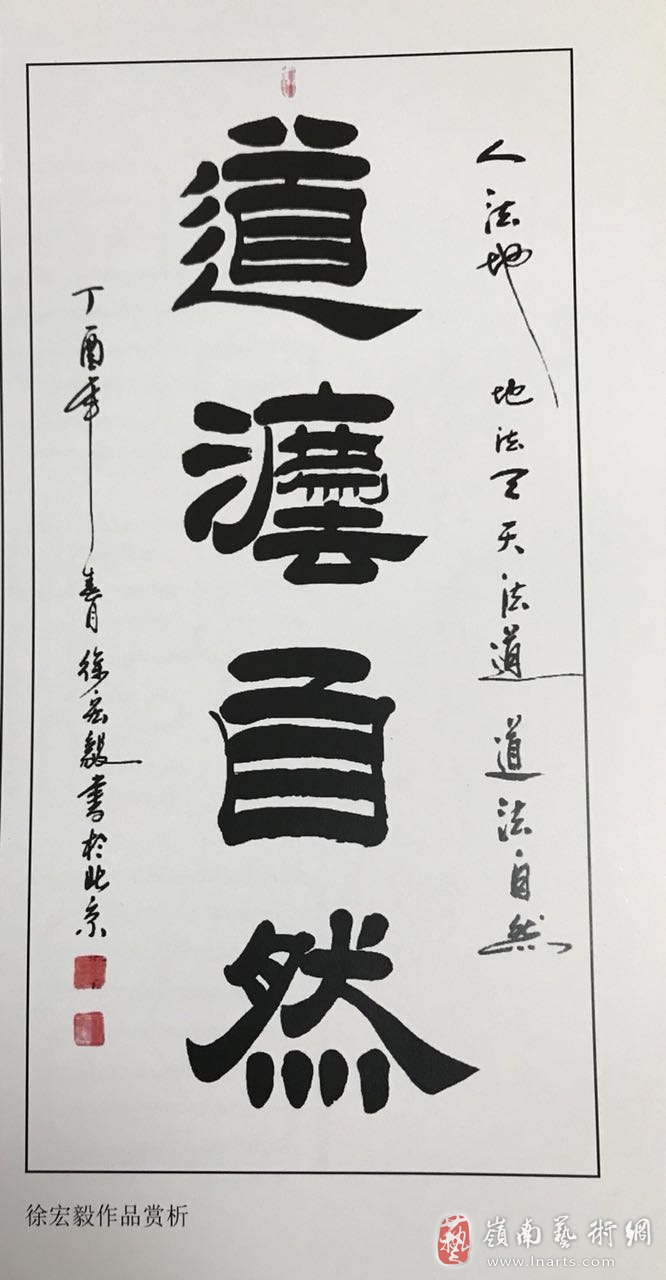 人法地 地法天天法道 道法自然
道灋自然
丁酉年春月徐宏毅書於北京
徐宏毅作品赏析
藝
嶺南藝術網
www.lnarts.com